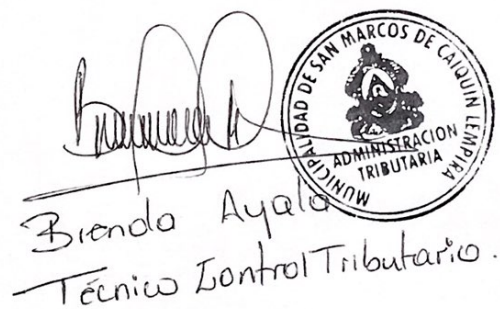 MUNICIPALIDAD DE SAN MARCOS DE CAIQUIN LEMPIRA
ADMINISTRACION
TRIBUTARIA
Brenda Ayala
Técnico Control Tributario.